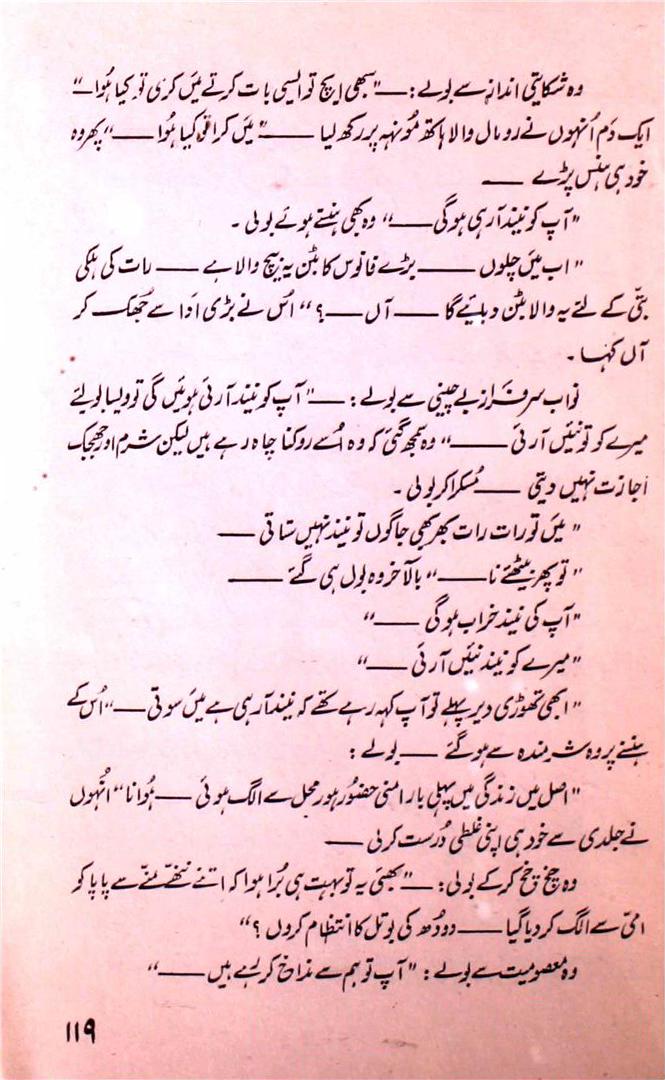 وہ شکایتی انداز سے بولے: — "سبھی ایچ تو ایسی بات کرتے میَں کری تو کیا ہُوا"
ایک دَم اُنہوں نے رومال والا ہاتھ مُونہہ پر رکھ لیا — "میَں کرا تو کیا ہُوا —" پھر وہ
خود ہی ہنس پڑے —
"آپ کو نیند آ رہی ہوگی —" وہ بھی ہنستے ہوئے بولی ۔
"اب میَں چلوں — بڑے فانوس کا بٹن یہ بیچ والا ہے — رات کی ہلکی
بتّی کے لئے یہ والا بٹن دبائیے گا — آں — ؟" اُس نے بڑی ادَا سے جُھک کر
آں کہا ۔
نواب سرفراز بے چینی سے بولے: — "آپ کو نیند آرئی ہوئیں گی تو ویسا بولئے
میرے کو تو نیئں آرئی —" وہ سمجھ گئی کہ وہ اُسے روکنا چاہ رہے ہیں لیکن شرم اور جھجک
اجازت نہیں دیتی — مُسکرا کر بولی ۔
"میَں تو رات رات بھر بھی جاگوں تو نیند نہیں ستاتی —
"تو پھر بیٹھئے نا —" بالآخر وہ بول ہی گئے —
"آپ کی نیند خراب ہوگی —"
"میرے کو نیند نیئں آرئی —"
"ابھی تھوڑی دیر پہلے تو آپ کہہ رہے تھے کہ نیند آرہی ہے میَں سوتی —" اُس کے
ہنسنے پر وہ شرمندہ سے ہو گئے — بولے :
"اصل میں زندگی میں پہلی بار امنی حضُور ہور محل سے الگ ہوئی — ہُوا نا" اُنہوں
نے جلدی سے خود ہی اپنی غلطی دُرست کر لی —
وہ چخ چخ کر کے بولی: — "بھئی یہ تو بہت ہی بُرا ہوا کہ اتنے ننھّے مُنّے سے پاپا کو
امیّ سے الگ کر دیا گیا — دودُھ کی بوتل کا انتظام کروں ؟"
وہ معصومیت سے بولے : "آپ تو ہم سے مذاخ کر رہے ہیں —"
۱۱۹